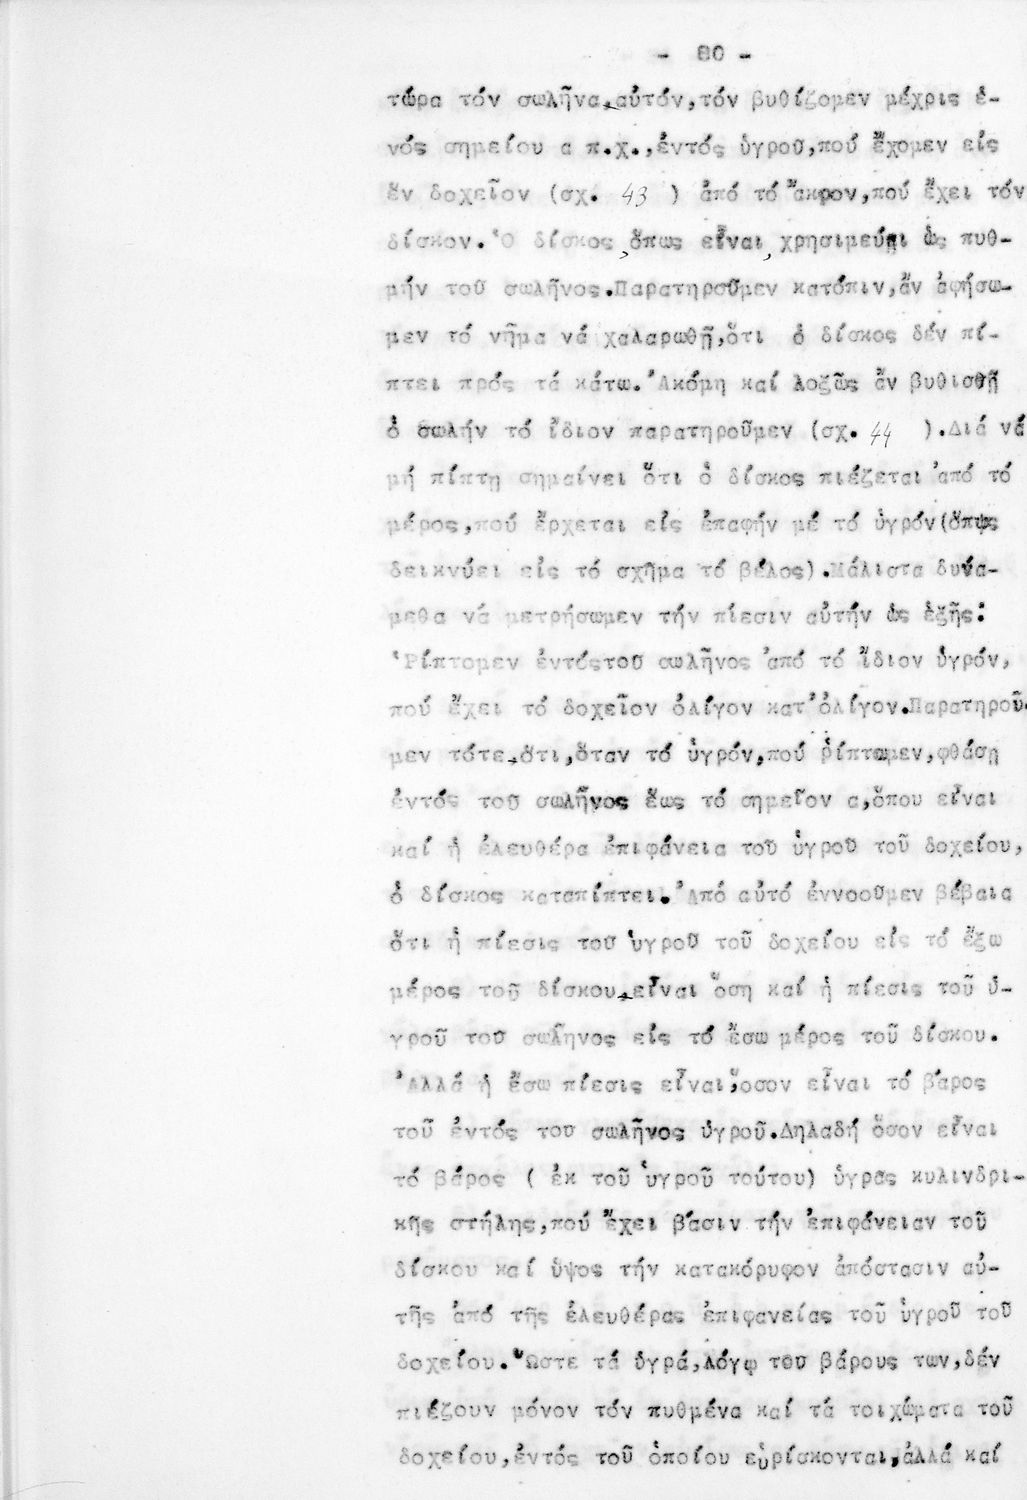 - 80 -
τώρα τόν σωλῆνα αὐτόν,τόν βυθίζομεν μέχρις ἑ-
νός σημείου α π.χ.,ἐντός ὑγροῦ,πού ἔχομεν εἰς
ἕν δοχεῖον (σχ. 43 ) ἀπό τό ἄκρον,πού ἔχει τόν
δίσκον.Ὁ δίσκος,ὅπως εἶναι,χρησιμεύει ὡς πυθ-
μήν τοῦ σωλῆνος.Παρατηροῦμεν κατόπιν,ἄν ἀφήσω-
μεν τό νῆμα νά χαλαρωθῇ,ὅτι ὁ δίσκος δέν πί-
πτει πρός τά κάτω.Ἀκόμη καί λοξῶς ἄν βυθισθῇ
ὁ σωλήν τό ἴδιον παρατηροῦμεν (σχ. 44 ).Διά νά
μή πίπτῃ σημαίνει ὅτι ὁ δίσκος πιέζεται ἀπό τό
μέρος,πού ἔρχεται εἰς ἐπαφήν μέ τό ὑγρόν(ὅπως
δεικνύει εἰς τό σχῆμα τό βέλος).Μάλιστα δυνά-
μεθα νά μετρήσωμεν τήν πίεσιν αὐτήν ὡς ἑξῆς:
Ῥίπτομεν ἐντόςτοῦ σωλῆνος ἀπό τό ἴδιον ὑγρόν,
πού ἔχει τό δοχεῖον ὀλίγον κατ'ὀλίγον.Παρατηροῦ-
μεν τότε ὅτι,ὅταν τό ὑγρόν,πού ῥίπτομεν,φθάσῃ
ἐντός τοῦ σωλῆνος ἕως τό σημεῖον α,ὅπου εἶναι
καί ἡ ἐλευθέρα ἐπιφάνεια τοῦ ὑγροῦ τοῦ δοχείου,
ὁ δίσκος καταπίπτει.Ἀπό αὐτό ἐννοοῦμεν βέβαια
ὅτι ἡ πίεσις τοῦ ὑγροῦ τοῦ δοχείου εἰς τό ἔξω
μέρος τοῦ δίσκου εἶναι ὅση καί ἡ πίεσις τοῦ ὑ-
γροῦ τοῦ σωλῆνος εἰς τό ἔσω μέρος τοῦ δίσκου.
Ἀλλά ἡ ἔσω πίεσις εἶναι,ὅσον εἶναι τό βάρος
τοῦ ἐντός τοῦ σωλῆνος ὑγροῦ.Δηλαδή ὅσον εἶναι
τό βάρος ( ἐκ τοῦ ὑγροῦ τούτου) ὑγρᾶς κυλινδρι-
κῆς στήλης,πού ἔχει βάσιν τήν ἐπιφάνειαν τοῦ
δίσκου καί ὕψος τήν κατακόρυφον ἀπόστασιν αὐ-
τῆς ἀπό τῆς ἐλευθέρας ἐπιφανείας τοῦ ὑγροῦ τοῦ
δοχείου.Ὥστε τά ὑγρά,λόγῳ τοῦ βάρους των,δέν
πιέζουν μόνον τόν πυθμένα καί τά τοιχώματα τοῦ
δοχείου,ἐντός τοῦ ὁποίου εὑρίσκονται,ἀλλά καί